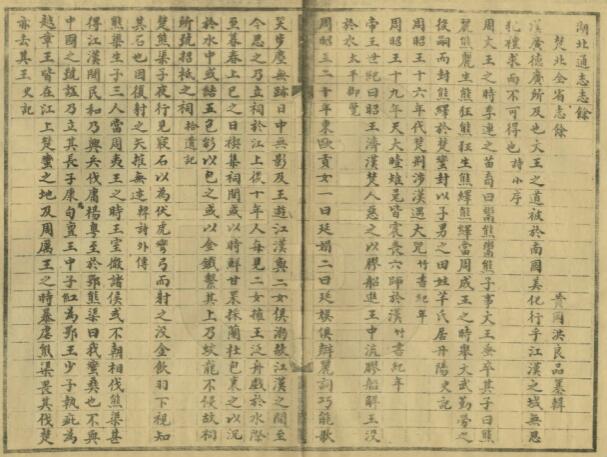 湖北通志志餘
楚北全省志餘
黄岡洪良品纂輯
漢廣德廣所及也文王之道被於南國美化行乎江漢之域無思
犯禮求而不可得也詩小序
周文王之時季連之苗裔曰鬻熊鬻熊子事文王蚤卒其子曰熊
麗熊麗生熊狂熊狂生熊繹熊繹當周成王之時舉文武勤勞之
後嗣而封熊繹於楚蠻封以子男之田姓芊氏居丹陽史記
周昭王十六年伐楚荆涉漢遇大兕竹書紀年
周昭王十九年天大曀雉兔皆震喪六師於漢竹書紀年
帝王世紀曰昭王濟漢楚人惡之以膠船進王中流膠船解王沒
於水太平御覽
周昭王二十年東甌貢女一曰延娟二曰延娱俱辯麗詞巧能歌
笑步塵無跡日中無影及王遊江漢與二女俱溺故江漢之間至
今思之乃立祠於江上後十年人每見二女擁王泛舟戲於水際
至暮春上巳之日禊集祠間或以時鮮甘果採蘭杜包裹之以沉
於水中或結五色彩以包之或以金鐵繫其上乃蛟龍不侵故祠
所號招祇之祠拾遺記
楚熊渠子夜行見寢石以為伏虎彎弓而射之没金飲羽下視知
其石也因復射之矢摧無迹韓詩外傳
熊渠生子三人當周夷王之時王室微諸侯或不朝相伐熊渠甚
得江漢間民和乃興兵伐庸楊粤至於鄂熊渠曰我蠻夷也不與
中國之號諡乃立其長子康為句亶王中子紅為鄂王少子執疵為
越章王皆在江上楚蠻之地及周厲王之時暴虐熊渠畏其伐楚
亦去其王史記